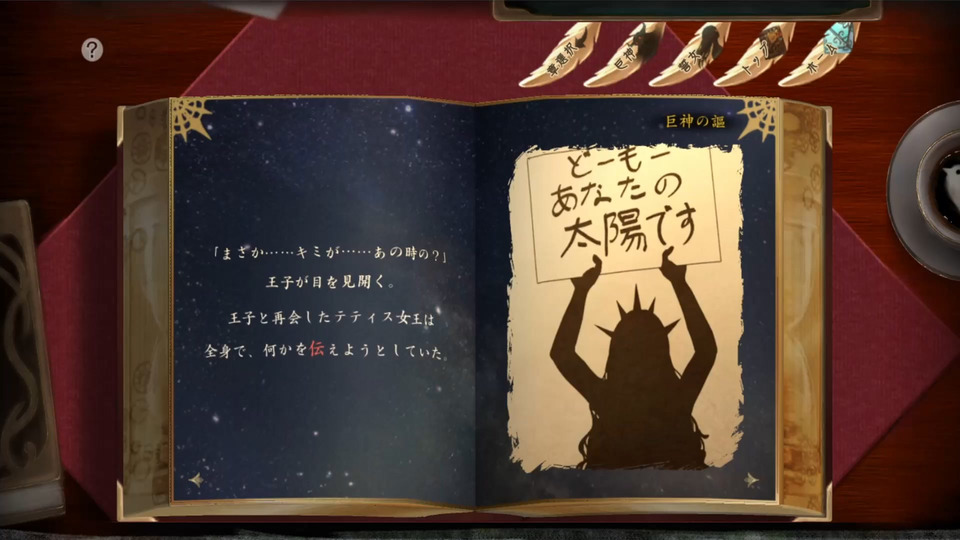 ?
章選択
トップ
巨神の謳
「まさか……キミが……あの時の?」
王子が目を見開く。
王子と再会したテティス女王は
全身で、何かを伝えようとしていた。
どーもー
あなたの
太陽です